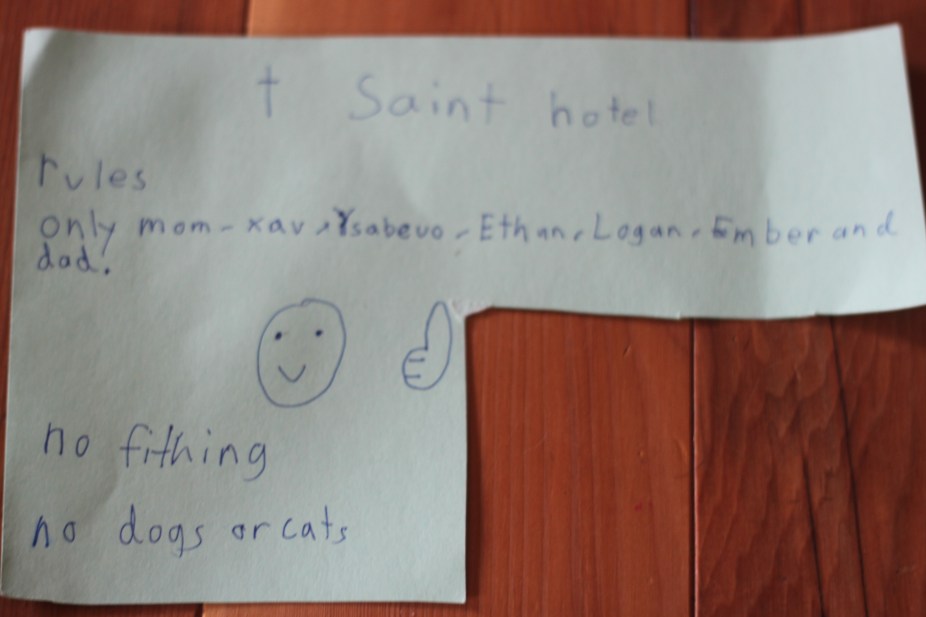 † Saint hotel
rules
only mom - xav, Ysabevo - Ethan, Logan, Ember and
dad.
no fithing
no dogs or cats